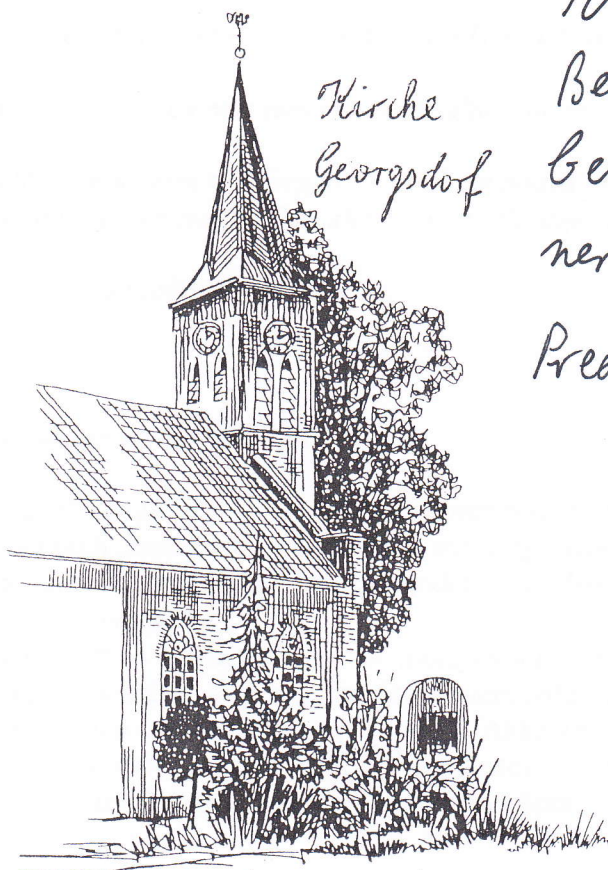 Kirche
Georgsdorf
Be
be
ner
Pred